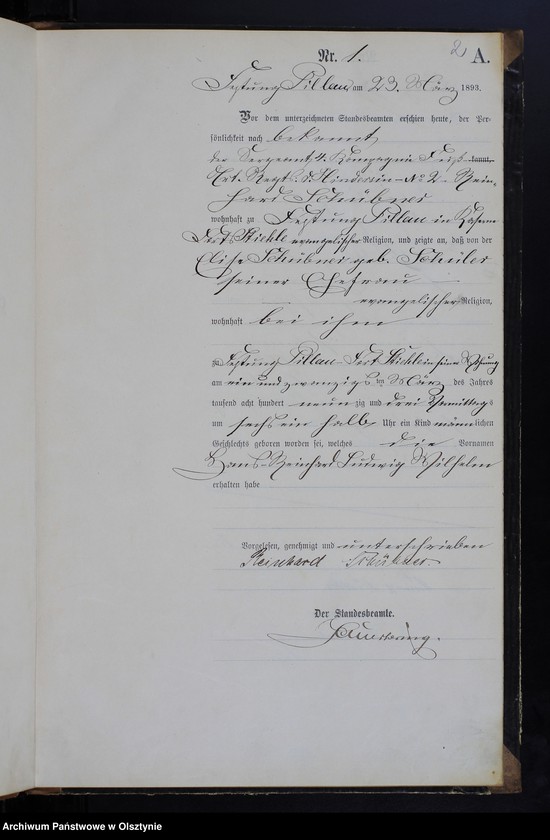 2
Nr. 1. A.
Festung Pillau am 23. März 1893.
Vor dem unterzeichneten Standesbeamten erschien heute, der Per-
sönlichkeit nach bekannt,
der Sergeant 4. Kompagnie Fuß kannt,
Art. Regts. v. Hindersin No 2 Rein-
hard Schübner
wohnhaft zu Festung Pillau in Kaserne
Fort Stiehle evangelischer Religion, und zeigte an, daß von der
Elise Schübner geb. Schüler
seiner Ehefrau
evangelischer Religion,
wohnhaft bei ihm
zu Festung Pillau Fort Stiehle in seiner Wohnung
am ein und zwanzigsten März des Jahres
tausend acht hundert neunzig und drei Vormittags
um sechs ein halb Uhr ein Kind männlichen
Geschlechts geboren worden sei, welches die Vornamen
Hans Reinhard Ludwig Wilhelm
erhalten habe
Vorgelesen, genehmigt und unterschrieben
Reinhard Schübner.
Der Standesbeamte.
Archiwum Państwowe w Olsztynie